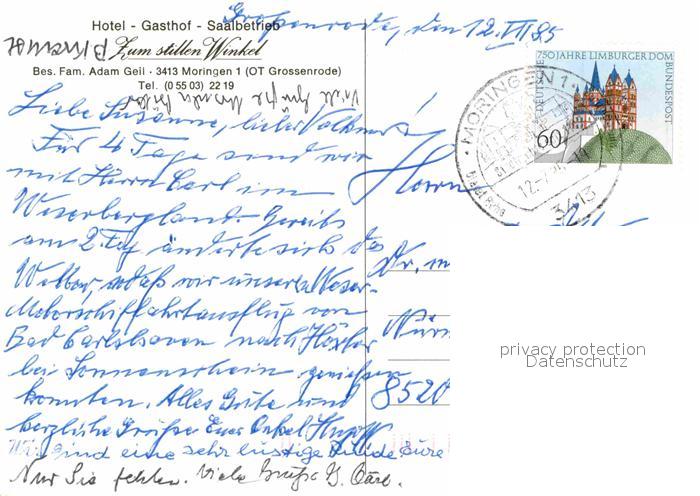 Großenrode, den 12.VII 85
Hotel - Gasthof - Saalbetrieb
Zum stillen Winkel
Bes. Fam. Adam Geil · 3413 Moringen 1 (OT Grossenrode)
Tel. (0 55 03) 22 19
Viele Grüße
Liebe Susanne, lieber Volkmar!
Für 4 Tage sind wir
mit Herrn Carl im
Weserbergland. Bereits
am 2. Tag änderte sich das
Wetter, sodaß wir unseren Weser-
Motorschiffahrtausflug von
Bad Carlshaven nach Höxter
bei Sonnenschein genießen
konnten. Alles Gute und
herzliche Grüße Euer Onkel
Wir sind eine sehr lustige Eure
Nur Sie fehlen. Viele Grüße G. Carl.
750 JAHRE LIMBURGER DOM
DEUTSCHE BUNDESPOST
60
MORINGEN 1
3413
Herrn
Dr. m
Nürn
8520
privacy protection
Datenschutz